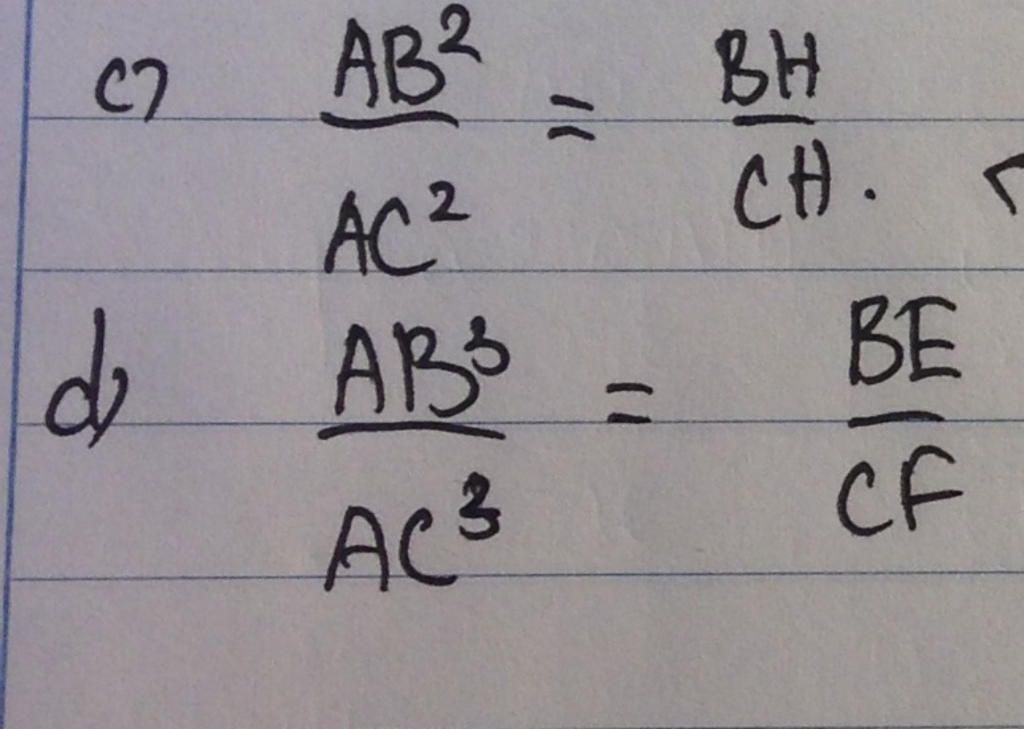 c) AB² / AC² = BH / CH.
d) AB³ / AC³ = BE / CF